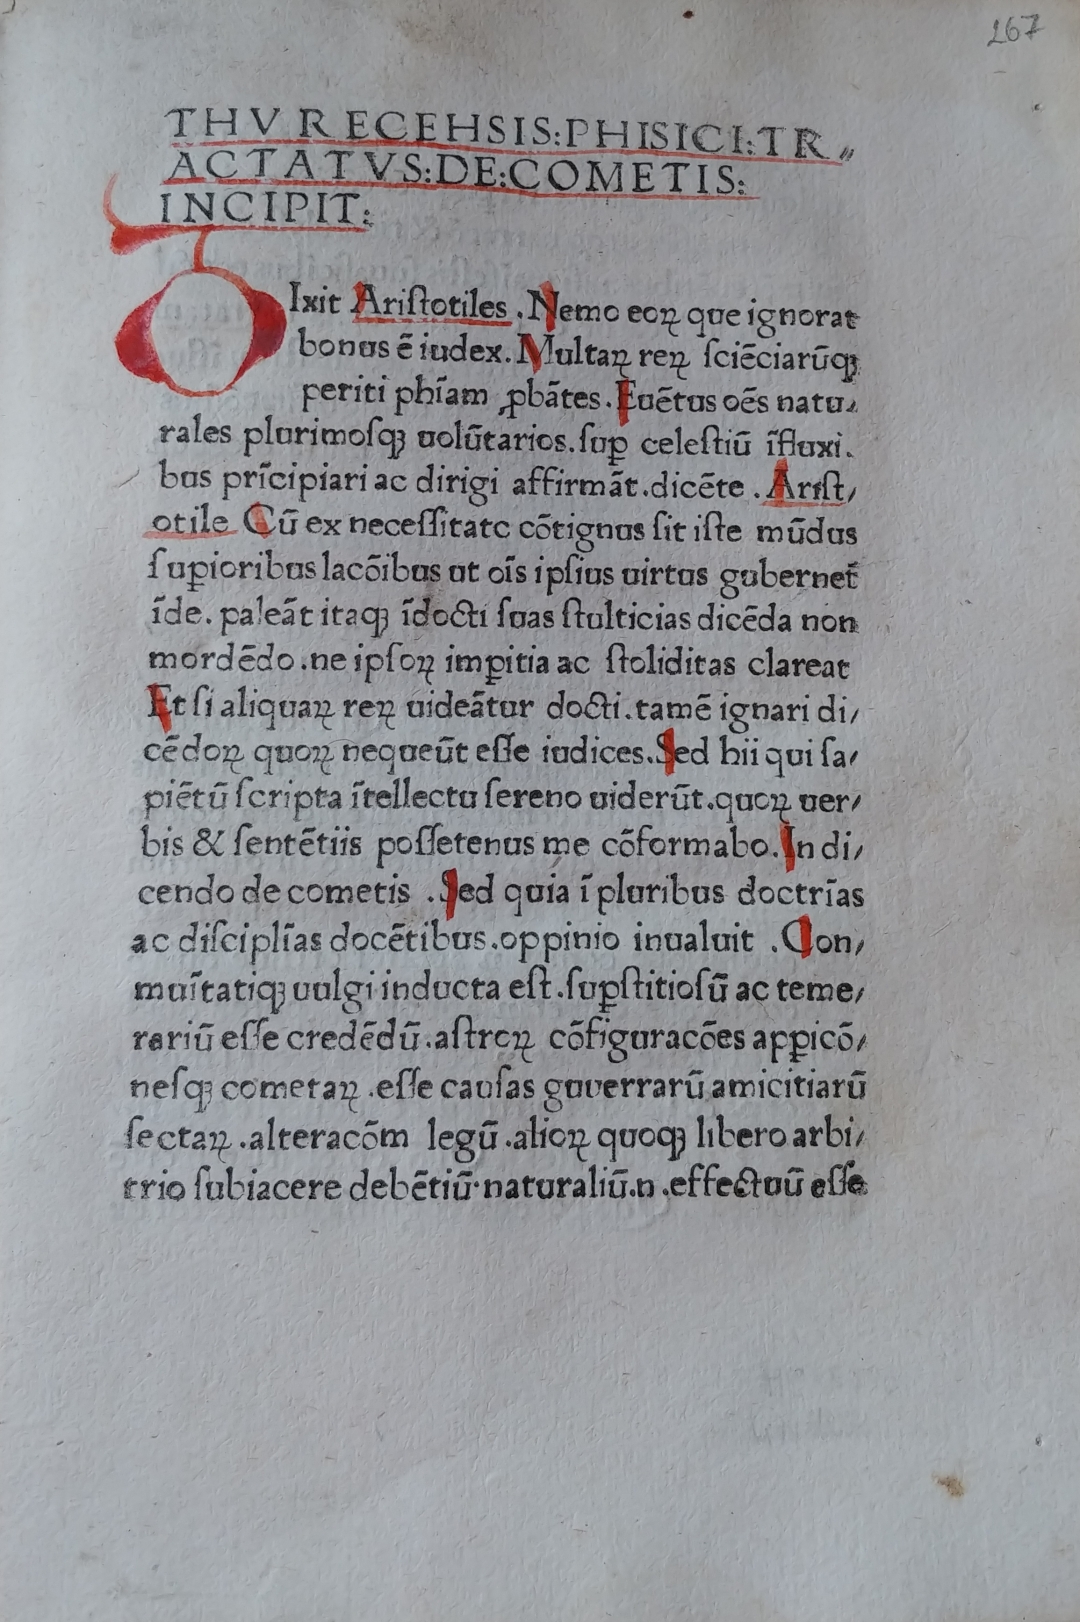 267
THVRECEHSIS:PHISICI:TR〃
ACTATVS:DE:COMETIS:
INCIPIT:
DIxit Ariſtotiles .Nemo eoꝝ que ignorat
bonus ē iudex.Multaꝝ reꝝ ſciēciarūqꝫ
periti phīam ꝓbātes.Euētus oēs natu⸗
rales plurimoſqꝫ uolūtarios.ſuꝑ celeſtiū īfluxi.
bus prīcipiari ac dirigi affirmāt.dicēte .Ariſt/
otile Cū ex neceſſitate cōtiguus ſit iſte mūdus
ſuꝑioribus lacōibus ut oīs ipſius uirtus gubernet̄
īde. paleāt itaqꝫ īdocti ſuas ſtulticias dicēda non
mordēdo.ne ipſoꝝ imꝑitia ac ſtoliditas clareat
Et ſi aliquaꝝ reꝝ uideātur docti.tamē ignari di/
cēdoꝝ quoꝝ nequeūt eſſe iudices.Sed hii qui ſa/
piētū ſcripta ītellectu ſereno uiderūt.quoꝝ uer/
bis & ſentētiis poſſetenus me cōformabo.In di/
cendo de cometis .Sed quia ī pluribus doctrīas
ac diſciplīas docētibus.oppinio inualuit .Con/
muītatiqꝫ uulgi inducta eſt.ſuꝑſtitioſū ac teme/
rariū eſſe credēdū.aſtroꝝ cōfiguracōes apꝑicō/
neſqꝫ cometaꝝ .eſſe cauſas guuerrarū amicitiarū
ſectaꝝ .alteracōm legū .alioꝝ quoqꝫ libero arbi/
trio ſubiacere debētiū·naturaliū.n .effectuū eſſe